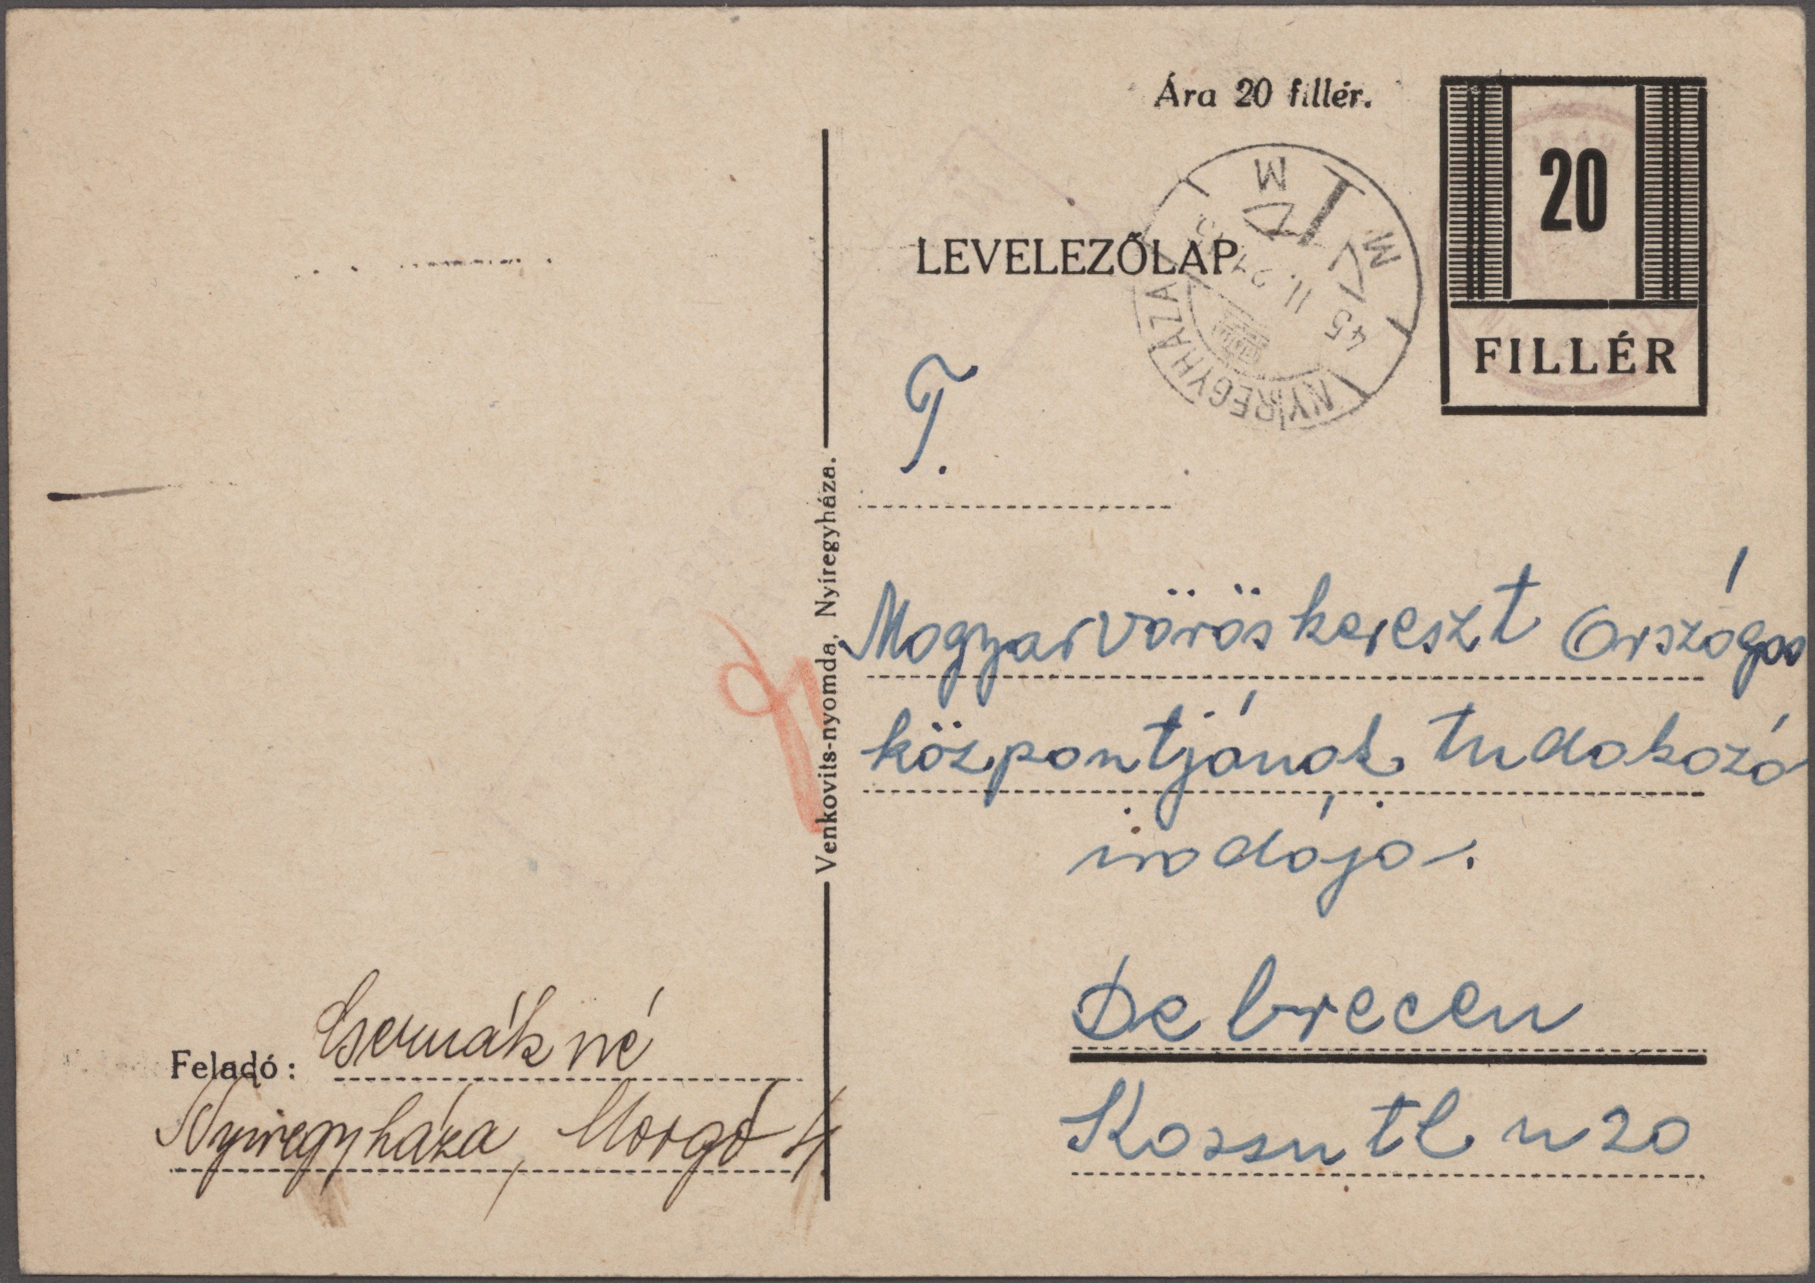 Ára 20 fillér.
20
FILLÉR
LEVELEZŐLAP
NYÍREGYHÁZA
45 II
M
M
T.
Magyar vöröskereszt Országos
központjának tudakozó
irodája.
Debrecen
Kossuth u 20
Venkovits-nyomda, Nyíregyháza.
Feladó: Csermákné
Nyiregyháza, Morgó 4